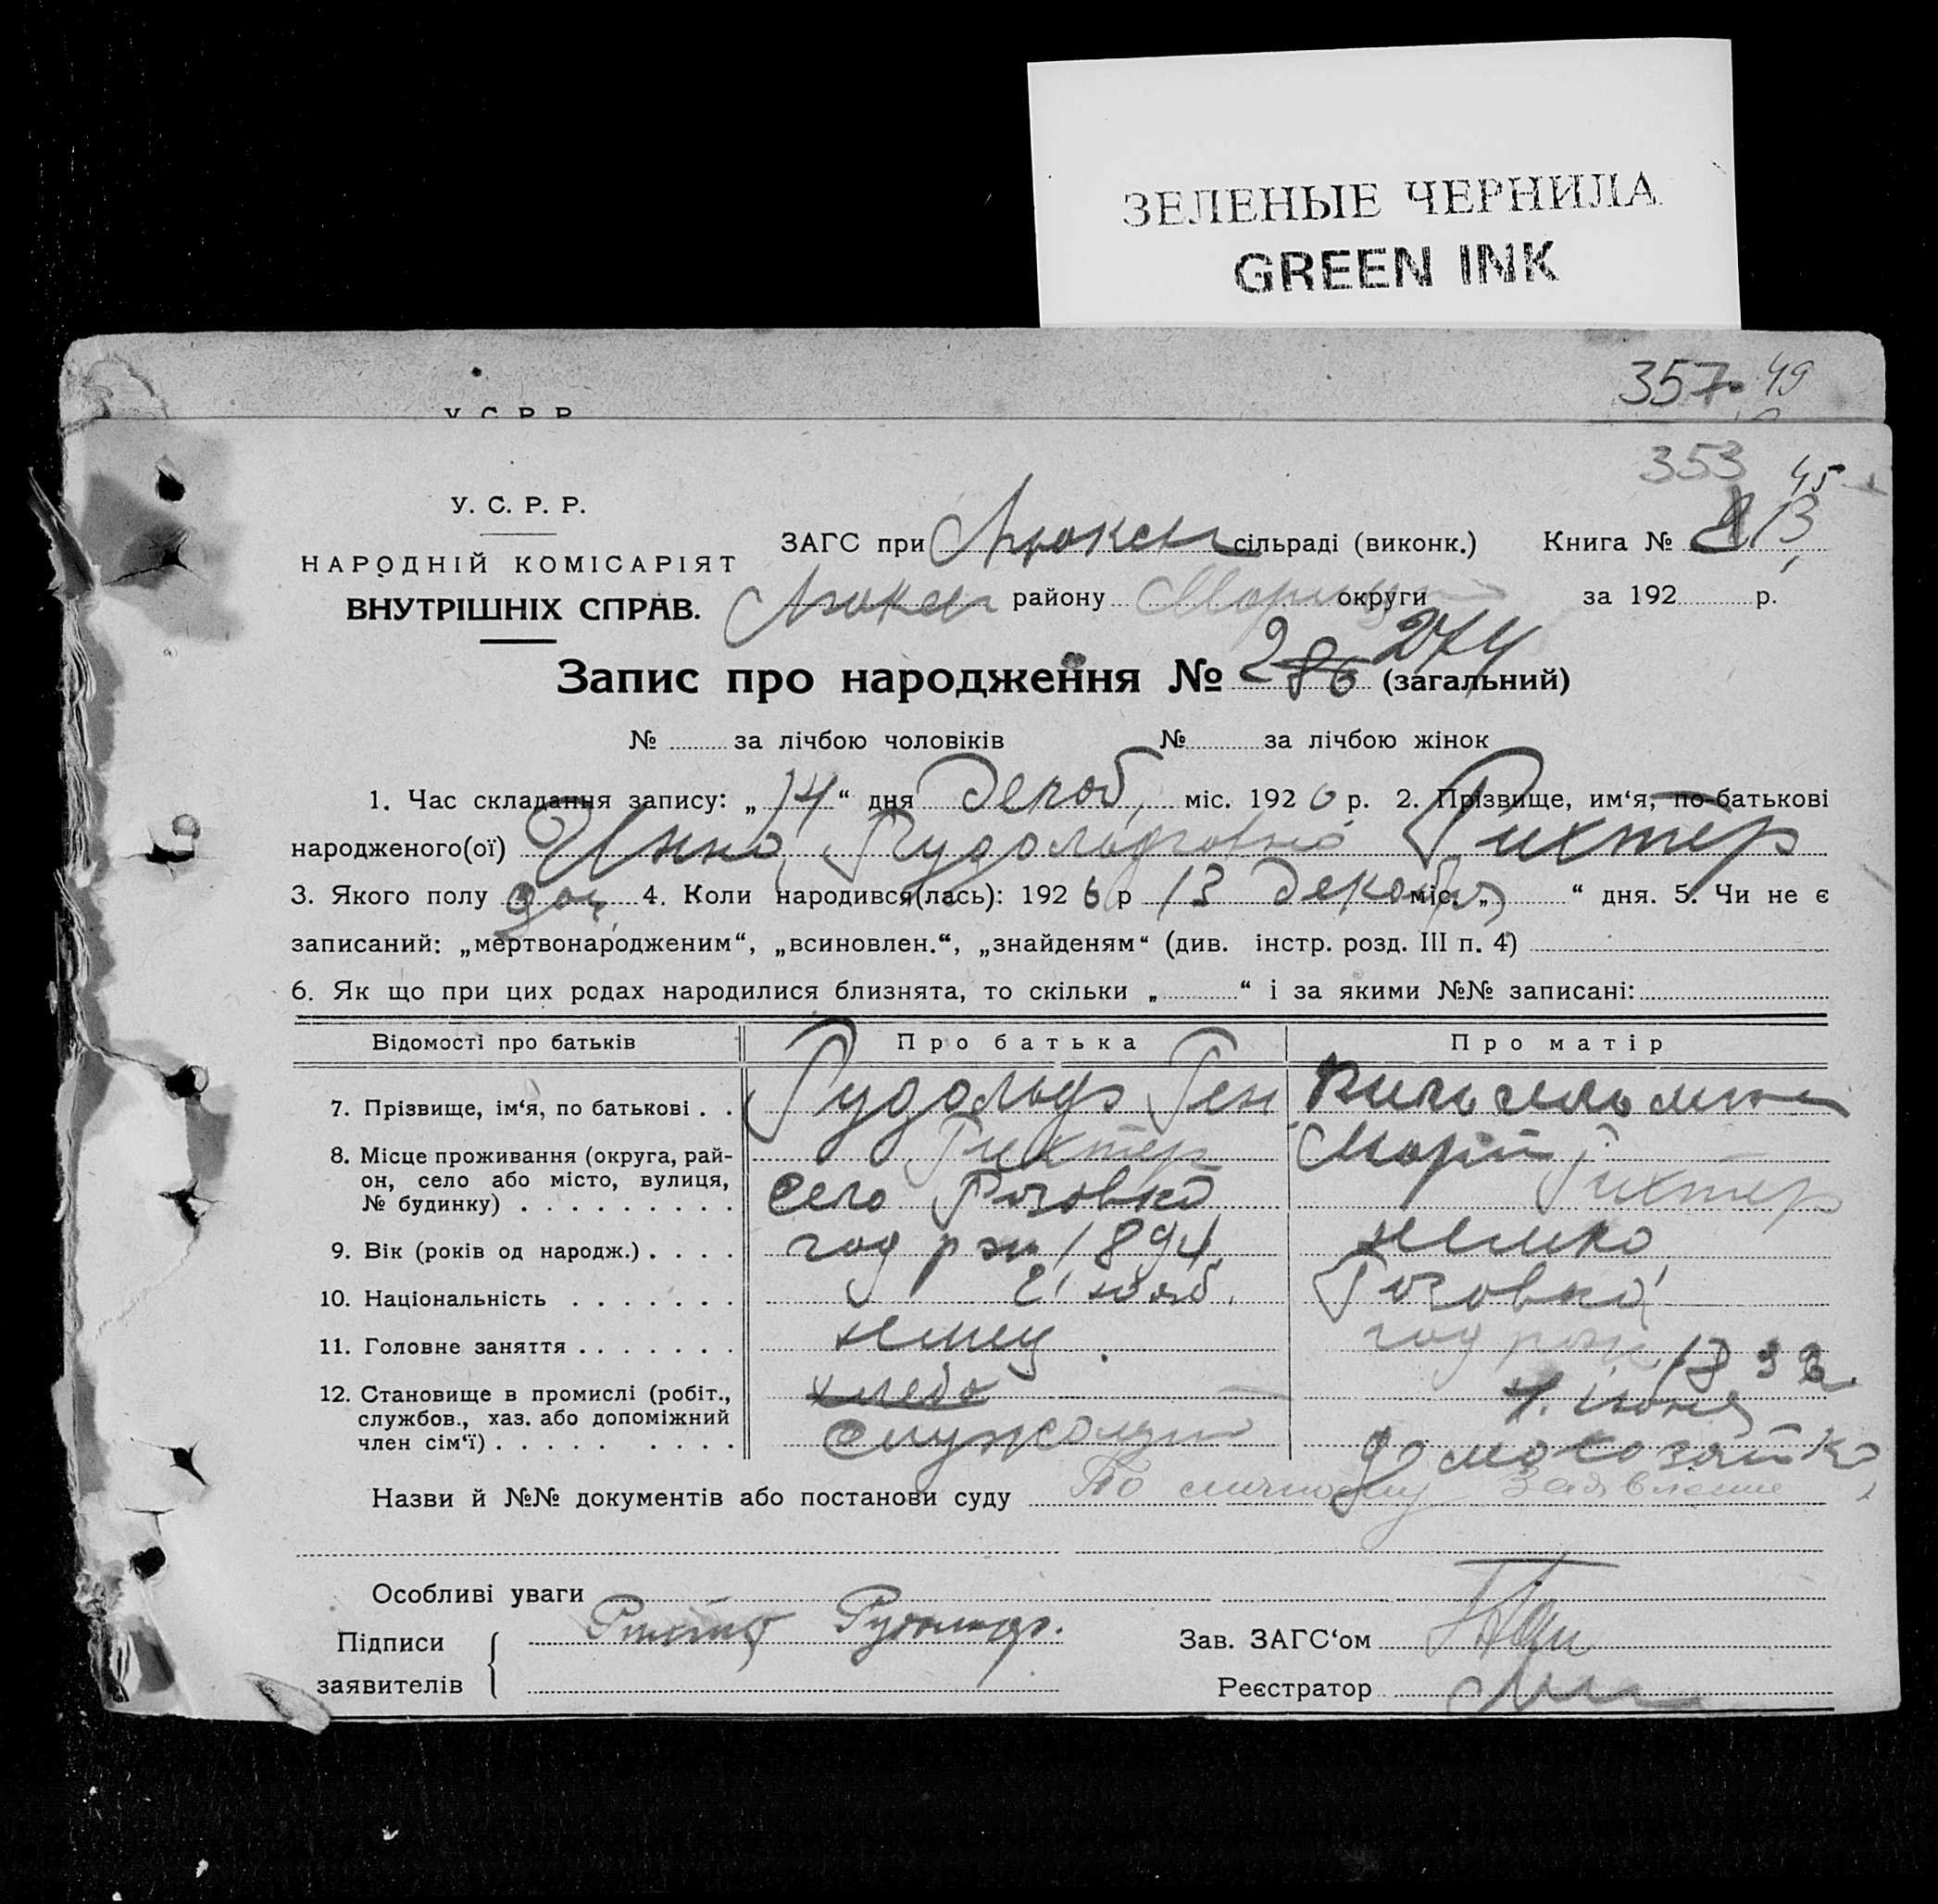 ЗЕЛЕНЫЕ ЧЕРНИЛА
GREEN INK
357 49
У. С. Р. Р.
353 45
У. С. Р. Р.
НАРОДНІЙ КОМІСАРІЯТ
ВНУТРІШНІХ СПРАВ.
ЗАГС при Люксем сільраді (виконк.) Книга № 13
Люксем району Мариуп округи за 192 р.
Запис про народження № 286 274 (загальний)
№ за лічбою чоловіків № за лічбою жінок
1. Час складання запису: „14“ дня декаб, міс. 1926 р. 2. Прізвище, им‘я, по-батькові
народженого(ої) Рудольфовна Рихтер
3. Якого полу доч. 4. Коли народився(лась): 1926 р 13 декабря міс. „ “ дня. 5. Чи не є
записаний: „мертвонародженим“, „всиновлен.“, „знайденям“ (див. інстр. розд. III п. 4)
6. Як що при цих родах народилися близнята, то скільки „ “ і за якими №№ записані:
Відомості про батьків Про батька Про матір
7. Прізвище, ім‘я, по батькові . . Рудольф Ген Вильгельмина
Рихтер Мария Рихтер
8. Місце проживання (округа, рай-
он, село або місто, вулиця,
№ будинку) . . . . . . . . . село
9. Вік (років од народж.) . . . . год рж 1894 немка
10. Національність . . . . . . . 21 нояб.
11. Головне заняття . . . . . . . немец год рож 189
12. Становище в промислі (робіт.,
службов., хаз. або допоміжний
член сім‘ї) . . . . . . . . . хлебо
служащий домохозяйка
Назви й №№ документів або постанови суду По личному заявлению
Особливі уваги
Підписи
заявителів
Рихтер Рудольф.
Зав. ЗАГС‘ом
Реєстратор